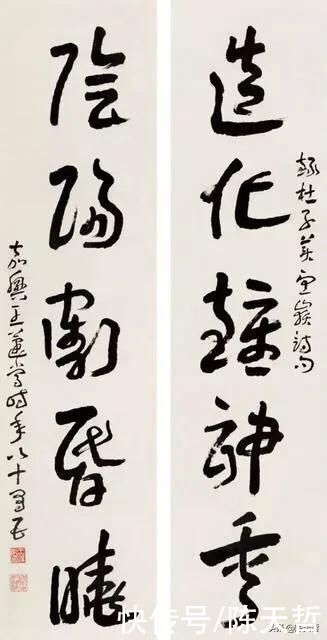 造化鍾神秀
錄杜子美望嶽詩句
陰陽割昏曉
嘉興王蘧常時年八十有五
快传号/陈天哲